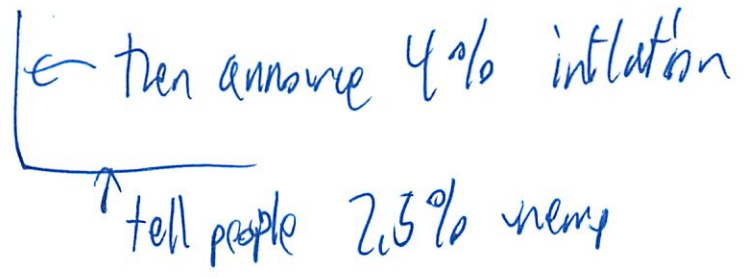 ← then announce 4% inflation
↑ tell people 2.5% unemp